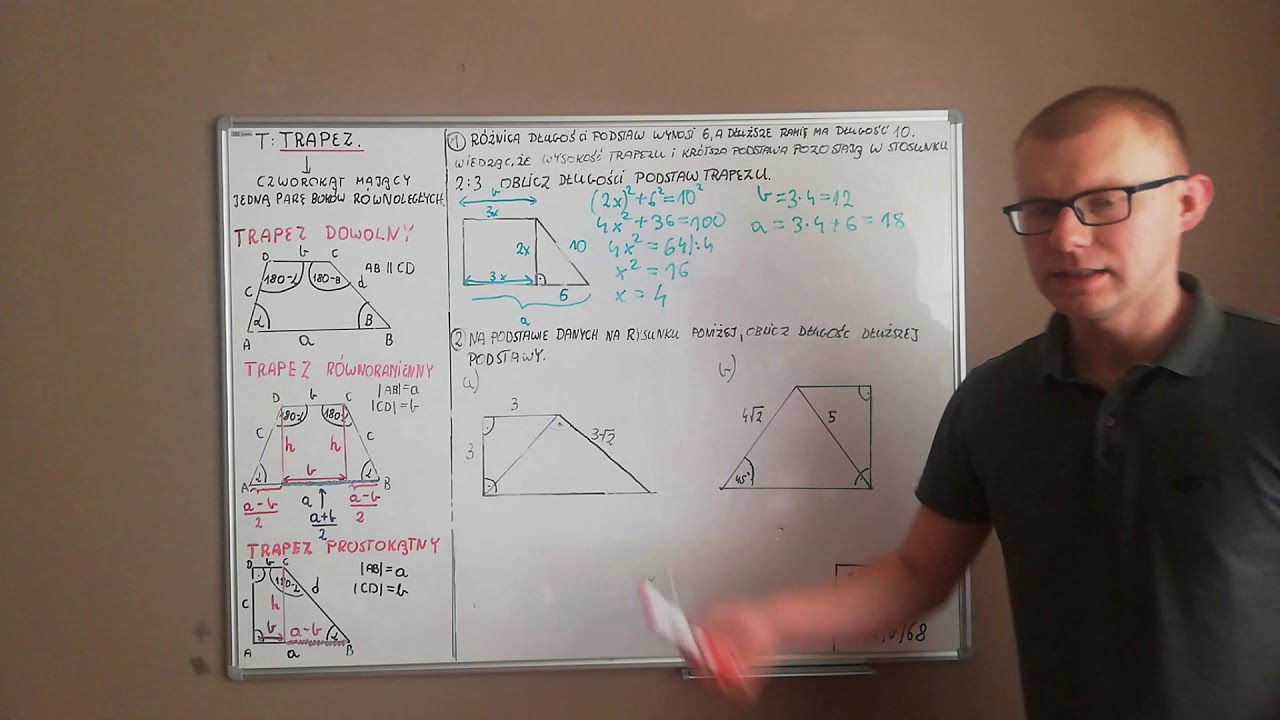 T: TRAPEZ.
CZWOROKĄT MAJĄCY
JEDNĄ PARĘ BOKÓW RÓWNOLEGŁYCH.
TRAPEZ DOWOLNY
D b C
180-α 180-β AB || CD
c d
α β
A a B
TRAPEZ RÓWNORAMIENNY
D b C |AB|=a
180-α 180-α |CD|=b
c h h c
α b α
A B
a-b/2 a a-b/2
a+b/2
TRAPEZ PROSTOKĄTNY
D b C |AB|=a
180-α d |CD|=b
c h
b a-b α
A a B
① RÓŻNICA DŁUGOŚCI PODSTAW WYNOSI 6, A DŁUŻSZE RAMIĘ MA DŁUGOŚĆ 10.
WIEDZĄC, ŻE WYSOKOŚĆ TRAPEZU I KRÓTSZA PODSTAWA POZOSTAJĄ W STOSUNKU
2:3 OBLICZ DŁUGOŚCI PODSTAW TRAPEZU.
b
3x
2x 10
3x
6
a
(2x)²+6²=10²
4x²+36=100
4x²=64/:4
x²=16
x=4
b=3·4=12
a=3·4+6=18
② NA PODSTAWIE DANYCH NA RYSUNKU PONIŻEJ, OBLICZ DŁUGOŚĆ DŁUŻSZEJ
PODSTAWY.
a)
3
3 3√2
b)
4√2 5
45°
68